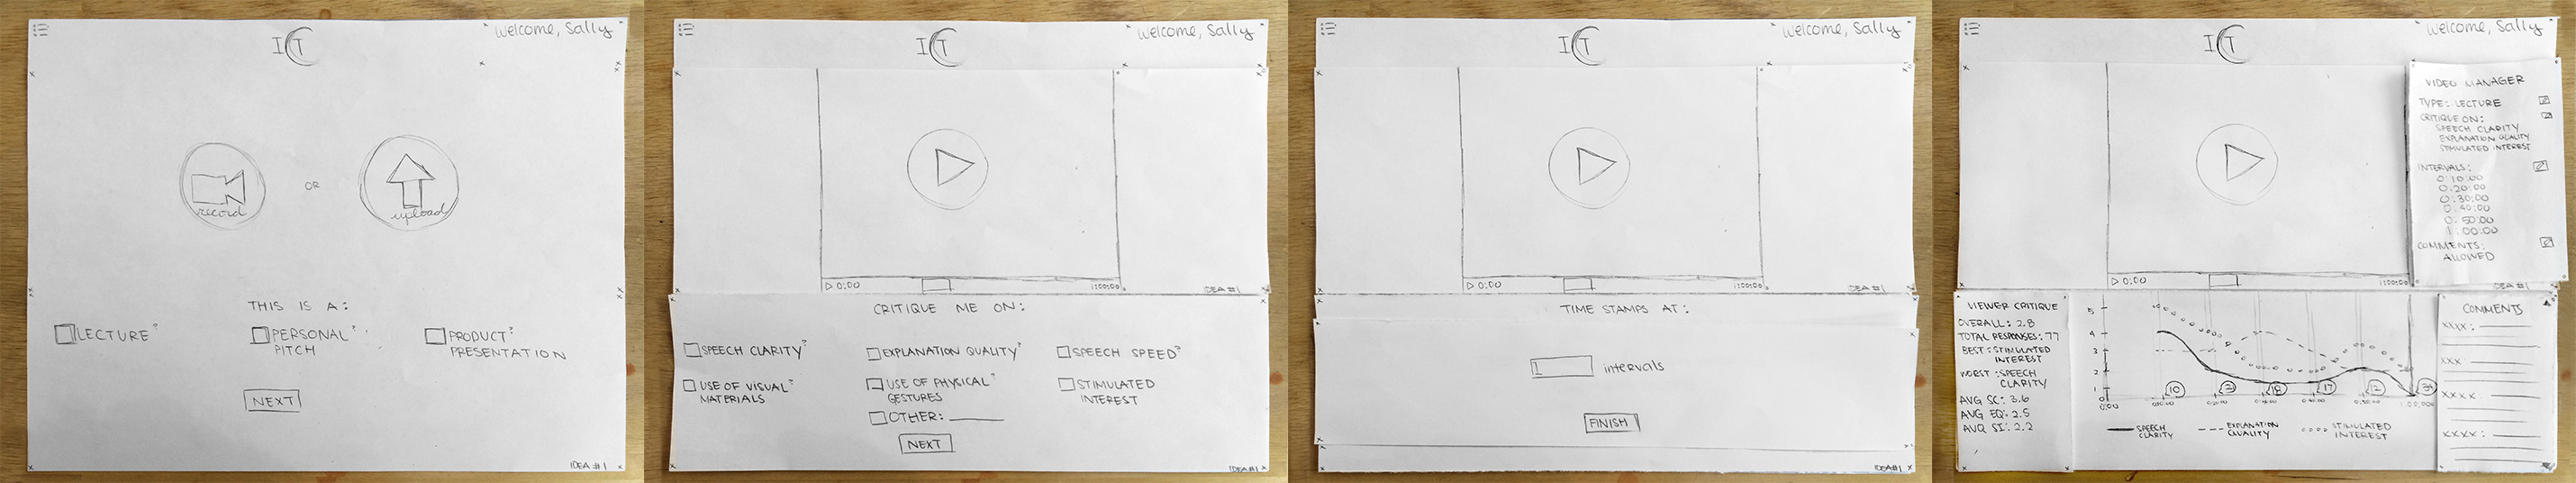 Welcome, Sally
ICT
record
OR
upload
THIS IS A:
LECTURE?
PERSONAL?
PITCH
PRODUCT?
PRESENTATION
NEXT
IDEA #1
Welcome, Sally
ICT
0:00
1:00:00
IDEA #1
CRITIQUE ME ON:
SPEECH CLARITY?
EXPLANATION QUALITY?
SPEECH SPEED?
USE OF VISUAL?
MATERIALS
USE OF PHYSICAL?
GESTURES
STIMULATED
INTEREST
OTHER:
NEXT
IDEA #1
Welcome, Sally
ICT
0:00
1:00:00
IDEA #1
TIME STAMPS AT:
1 intervals
FINISH
IDEA #1
Welcome, Sally
ICT
VIDEO MANAGER
TYPE: LECTURE
CRITIQUE ON:
SPEECH CLARITY
EXPLANATION QUALITY
STIMULATED INTEREST
INTERVALS:
0:10:00
0:20:00
0:30:00
0:40:00
0:50:00
1:00:00
COMMENTS:
ALLOWED
0:00
1:00:00
IDEA #1
VIEWER CRITIQUE
OVERALL: 2.8
TOTAL RESPONSES: 77
BEST: STIMULATED
INTEREST
WORST: SPEECH
CLARITY
AVG SC: 3.6
AVG EQ: 2.5
AVG SI: 2.2
5
4
3
2
1
0
10
18
17
12
34
SPEECH
CLARITY
EXPLANATION
QUALITY
STIMULATED
INTEREST
COMMENTS
xxxx:
xxx:
xxxx:
xxxx: